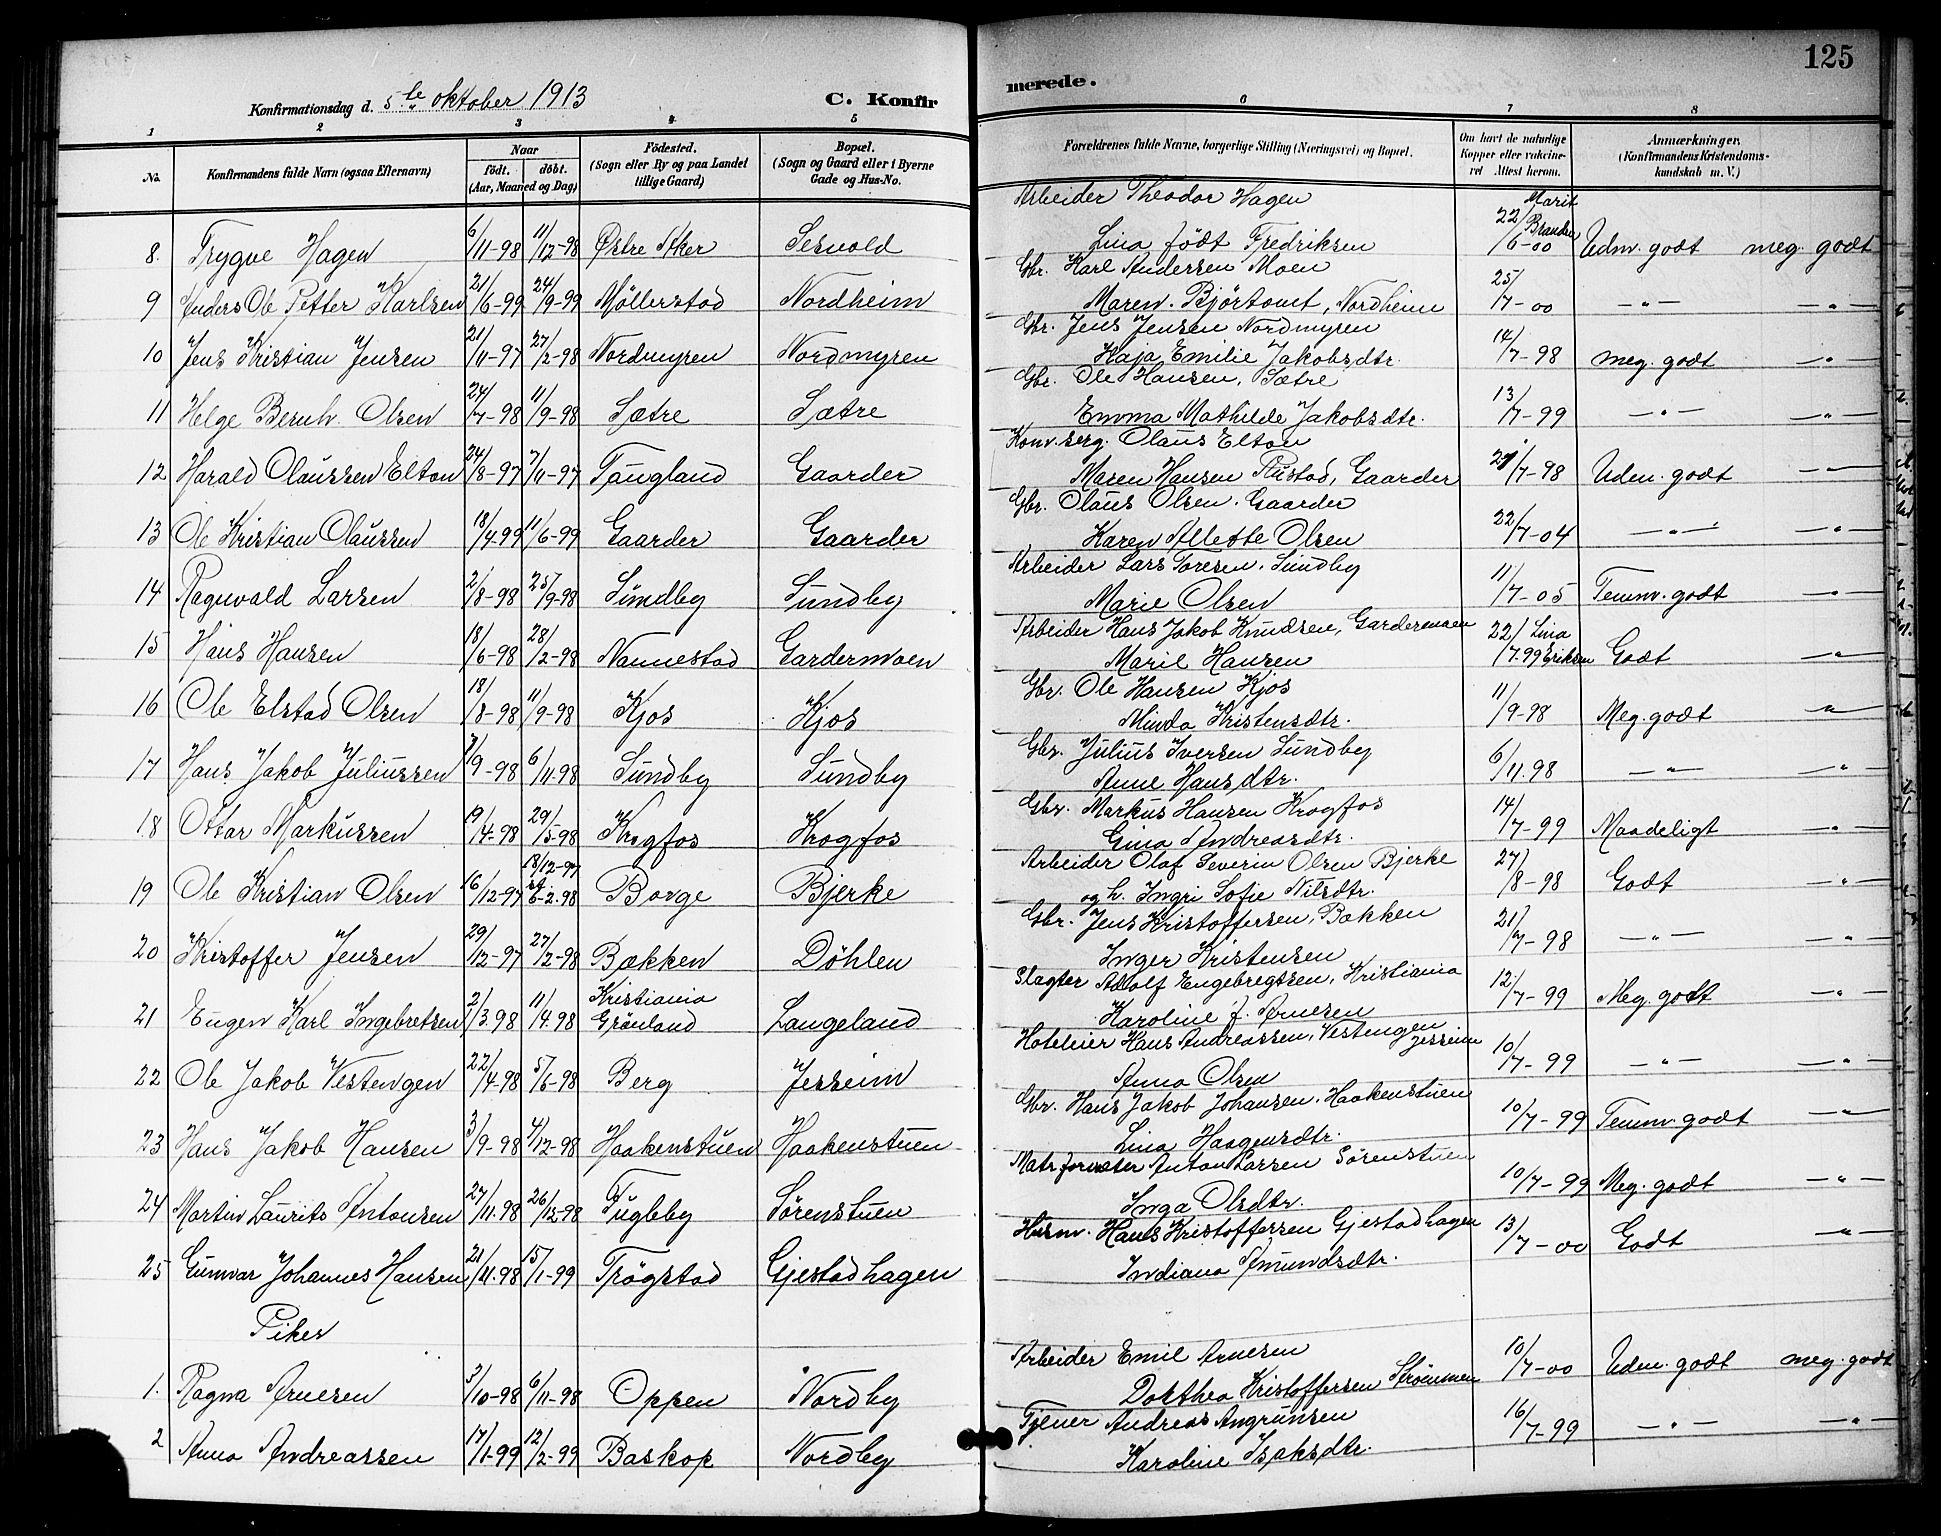 125
Konfirmationsdag d. 5te oktober 1913
C. Konfirmerede.
1 2 3 4 5 6 7 8
No. Konfirmandens fulde Navn (ogsaa Efternavn) Naar født. døbt. (Aar, Maaned og Dag) Fødested. (Sogn eller By og paa Landet tillige Gaard) Bopæl. (Sogn og Gaard eller i Byerne Gade og Hus-No. Forældrenes fulde Navne, borgerlige Stilling (Næringsvei) og Bopæl. Om havt de naturlige Kopper eller vaccineret Attest herom. Anmærkninger. (Konfirmandens Kristendomskundskab m. V.)
Arbeider Theodor Hagen
8. Trygve Hagen 6/11-98 11/12-98 Østre Aker Sesvold Lina født Fredriksen 22/6-00 Marit Udm. godt meg. godt
Gbr. Karl Andersen Moen
9 Anders Ole Petter Karlsen 21/6-99 24/9-99 Møllerstad Nordheim Maren Nordheim 25/7-00 -"- -"-
Gbr. Jens Jensen Nordmyren
10 Jens Kristian Jensen 21/11-97 27/2-98 Nordmyren Nordmyren Kaja Emilie Jakobsdtr. 14/7-98 meg. godt -"-
Gbr. Ole Hansen, Sætre
11 Helge Bernh. Olsen 24/7-98 11/9-98 Sætre Sætre Emma Mathilde Jakobsdtr. 13/7-99 -"- -"-
Olaus Elton
12 Harald Olaussen Elton 24/8-97 7/11-97 Taugland Gaarder Maren Hansen Rustad, Gaarder 21/7-98 Udm. godt -"-
Gbr. Olaus Olsen. Gaarder
13 Ole Kristian Olaussen 18/4-99 11/6-99 Gaarder Gaarder Karen Allette Olsen 22/7-04 -"- -"-
Arbeider Lars Toresen. Sundby
14 Ragnvald Larsen 2/8-98 25/9-98 Sundby Sundby Marie Olsen 11/7-05 Temm. godt -"-
Arbeider Hans Jakob Knudsen, Gardermoen
15 Hans Hansen 18/6-98 28/2-98 Nannestad Gardermoen Marie Hansen 22/7.99 Lina Eriksen Godt -"-
Gbr. Ole Hansen Kjos
16 Ole Elstad Olsen 18/8-98 11/9-98 Kjos Kjos Minda Kristensdtr. 11/9-98 Meg. godt -"-
Gbr. Julius Iversen Sundby
17 Hans Jakob Juliussen 7/9-98 6/11-98 Sundby Sundby Anne Hansdtr. 6/11.98 -"- -"-
Gbr. Markus Hansen Krogfos
18 Ottar Markussen 19/4-98 29/5-98 Krogfos Krogfos Gina Andreasdtr. 14/7-99 Maadeligt -"-
Arbeider Olaf Severin Olsen Bjerke
19 Ole Kristian Olsen 16/12-97 18/12-97 6-2.98 Borge Bjerke og h. Ingri Sofie Nilsdtr. 27/8-98 Godt -"-
Gbr. Jens Kristoffersen, Bækken
20 Kristoffer Jensen 29/12-97 27/2-98 Bækken Døhlen Inger Kristensen 21/7-98 -"- -"-
Slagter Adolf Engebregtsen, Kristiania
21 Eugen Karl Ingebretsen 2/3.98 11/4.98 Kristiania Grønland Langeland Karoline f. Arnesen 12/7-99 Meg. godt -"-
Hoteleier Hans Andreassen, Vestengen Jessheim
22 Ole Jakob Vestengen 22/4-98 5/6-98 Berg Jesseim Anna Olsen 10/7-99 -"- -"-
Gbr. Hans Jakob Johansen. Haakenstuen
23 Hans Jakob Hansen 3/9-98 4/12-98 Haakenstuen Haakenstuen Lina Haagensdtr. 10/7-99 Temm. godt -"-
Matr.forvalter Anton Larsen Sørenstuen
24 Martin Laurits Antonsen 27/11.98 26/12-98 Fugleby Sørenstuen Inga Olsdtr. 10/7-99 Meg. godt -"-
Husm. Hans Kristoffersen Gjestadhagen
25 Gunvar Johannes Hansen 21/11.98 15/1-99 Trøgstad Gjestadhagen Indiana Amundsdtr. 13/7-00 Godt -"-
Piker
Arbeider Emil Arnesen
1. Ragna Arnesen 3/10-98 6/11-98 Oppen Nordby Dorthea Kristoffersen Strømmen 10/7-00 Udm. godt meg. godt
Tjener Andreas Angrunsen
2 Anna Andreassen 17/1-99 12/2-99 Baskop Nordby Karoline Isaksdtr. 16/7-99 -"- -"-